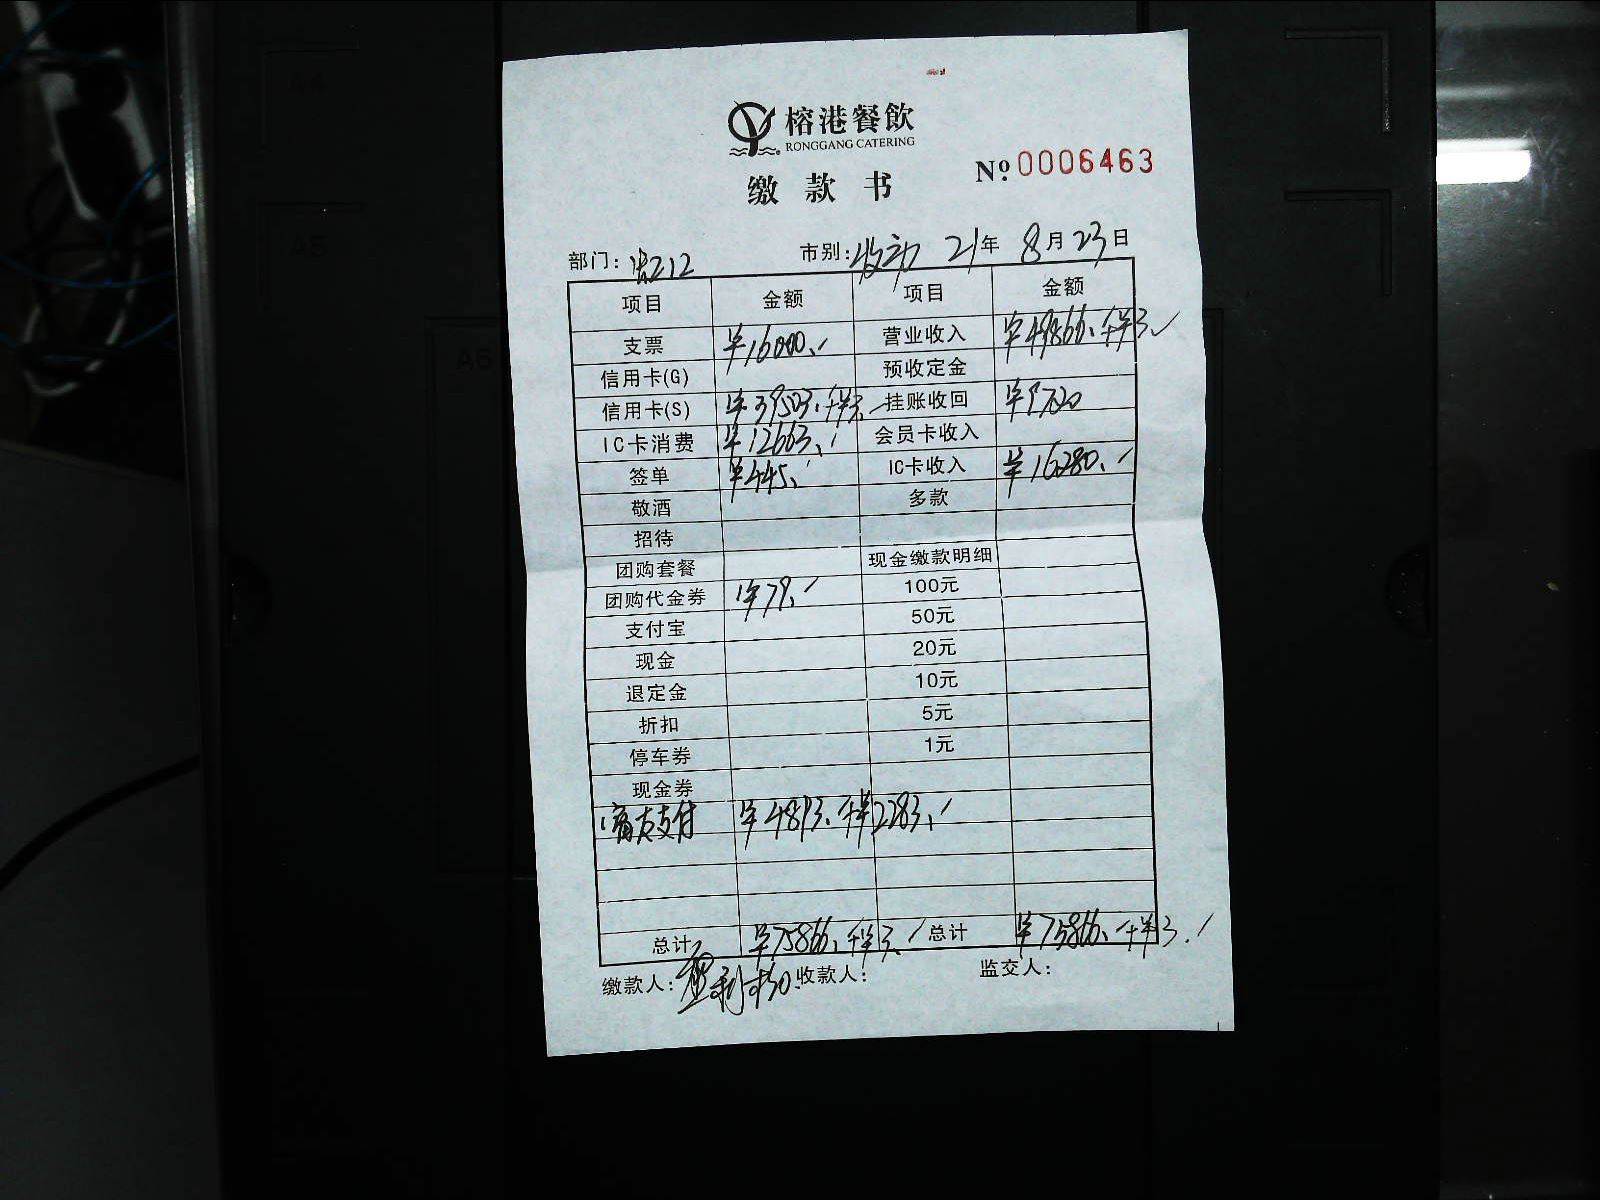 榕港餐飲
RONGGANG CATERING
Nº 0006463
缴款书
部门: 市别: 21年 8月23日
项目 金额 项目 金额
支票 ¥16000. 营业收入 ¥49866.
信用卡(G) 预收定金
信用卡(S) ¥39503. 挂账收回 ¥9720
IC卡消费 ¥12663. 会员卡收入
签单 ¥445. IC卡收入 ¥16280.
敬酒 多款
招待
团购套餐 现金缴款明细
团购代金券 ¥79. 100元
支付宝 50元
现金 20元
退定金 10元
折扣 5元
停车券 1元
现金券
支付 ¥4893. 2283.
总计 ¥75866. 总计 ¥75866.
缴款人: 收款人: 监交人:
A5
A6